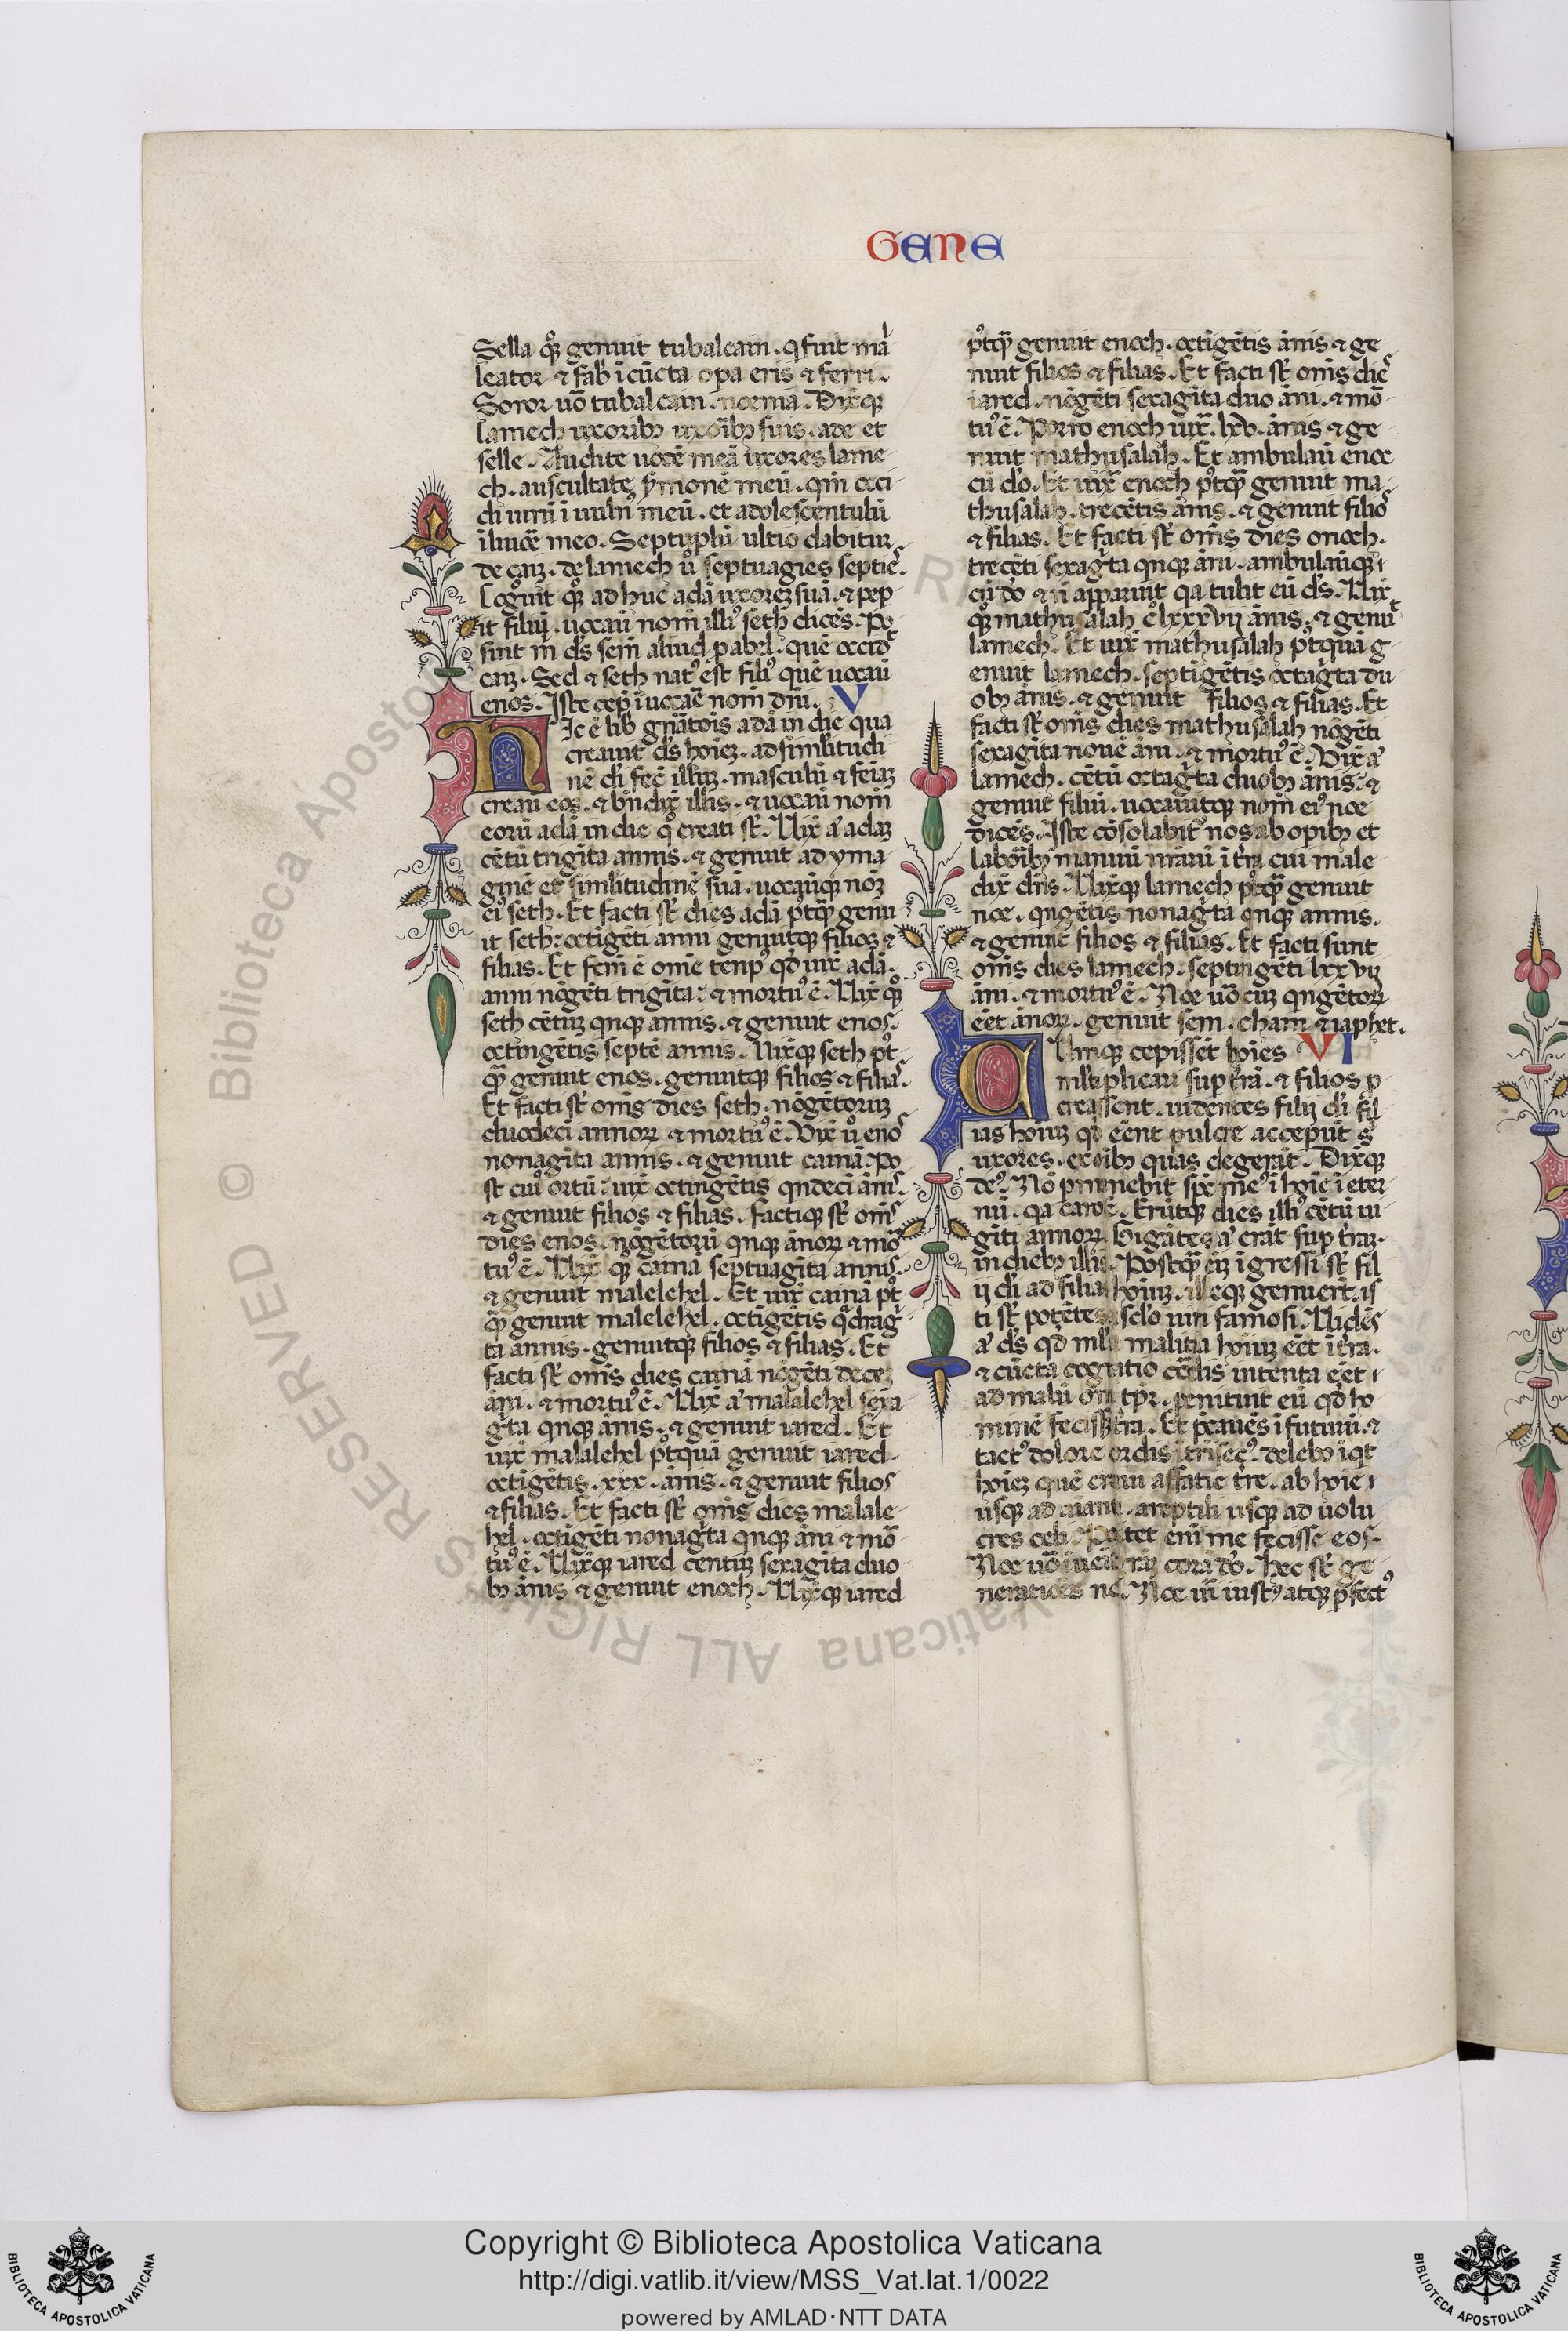 GENE
Sella qꝫ genuit tubalcain. q fuit mal
leator ⁊ fab̾ ī cūcta opa eris ⁊ ferri.
Soror uō tubalcain. noema. Dixitqꝫ
lamech uxoribꝫ suis. ade et
selle. Audite uocē meā uxores lame
ch. auscultate ẜmonē meū. qm̄ occi
di uirū ī uuln̄ meū. et adolescentulū
ī liuorē meo. Septuplū ultio dabitur
de caī. de lamech u̾o septuagies septiēs.
Cognuit qꝫ adhuc adā uxorē suā. ⁊ pep
it filiū. uocauī nom̄ illiꝰ seth dicēs. Po
suit m̄ d̄s sem̄ aliud p abel. quē occid̾
caī. Sed ⁊ seth natꝰ est filiꝰ quē uocauī
enos. Iste cep̄ īuocar̄e nom̄ dn̄i. V
Hic ē lib̾ gn̄atōis adā in die qua
creauit d̄s hoīeꝫ. ad similitudi
nē dī fec̄ illuꝫ. masculū ⁊ feīaꝫ
creauī eos. ⁊ bn̄dix̄ illis. ⁊ uocauī nom̄
eorū adā in die qͦ creati st̄. Uix̄ aꝰ adaꝫ
cētū trigīta annis. ⁊ genuit ad yma
ginē et similitudinē suā. uocauitqꝫ noꝫ
eiꝰ seth. Et facti st̄ dies adā pꝰtqꝫ genu
it seth: octīgēti anni genuitqꝫ filios ⁊
filias. Et fcm̄ ē om̄e tempꝰ qd uix̄ adā.
anni nōgēti trigīta: ⁊ mortuꝰ ē. Uix̄ qꝫ
seth cētuꝫ qnqꝫ annis. ⁊ genuit enos.
octingētis septē annis. Uixitqꝫ seth pꝰt
qꝫ genuit enos. genuitqꝫ filios ⁊ filias.
Et facti st̄ om̄s dies seth. nōgētoruꝫ
duodeci annoꝝ ⁊ mortuꝰ ē. Uix̄ u̾o enos
nonagīta annis. ⁊ genuit cainā. Po
st cuiꝰ ortū: uix̄ octingētis qndeci ānis.
⁊ genuit filios ⁊ filias. factiqꝫ st̄ om̄s
dies enos. nōgētorū qnqꝫ ānoꝝ ⁊ mo
tuꝰ ē. Uix̄ qꝫ cainā septuagīta annis.
⁊ genuit malelehel. Et uix̄ cainā pꝰt
qꝫ genuit malelehel. octīgētis qͣdragi
ta annis. genuitqꝫ filios ⁊ filias. Et
facti st̄ om̄s dies cainā nōgēti deceꝫ
āni. ⁊ mortuꝰ ē. Uix̄ aꝰ malalehel sexa
gīta qnqꝫ ānis. ⁊ genuit iared. Et
uix̄ malalehel pꝰtquā genuit iared.
octīgētis. xxx. ānis. ⁊ genuit filios
⁊ filias. Et facti st̄ om̄s dies malale
hel. octīgēti nonagīta qnqꝫ āni ⁊ mō
tuꝰ ē. Uixitqꝫ iared centuꝫ sexagīta duo
bꝫ ānis ⁊ genuit enoch. Uixitqꝫ iared
pꝰtqꝫ genuit enoch. octīgētis ānis ⁊ ge
nuit filios ⁊ filias. Et facti st̄ om̄s dies
iared. nōgēti sexagīta duo āni. ⁊ mo
tuꝰ ē. Porro enoch uix̄. lxv. ānis ⁊ ge
nuit mathusalah. Et ambulauī enoc
cū do. Et uix̄ enoch pꝰtqꝫ genuit ma
thusalah. trecētis ānis. ⁊ genuit filios
⁊ filias. Et facti st̄ om̄s dies onoch.
trecēti sexagīta qnqꝫ āni. ambulauitqꝫ
cū do ⁊ n̄ apparuit qa tulit eū d̄s. Uix̄
qꝫ mathusalah cͦlxxxvij ānis. ⁊ genuit
lamech. Et uix̄ mathusalah pꝰtquā g
enuit lamech. septīgētis octagīta du
obꝫ ānis. ⁊ genuit filios ⁊ filias. Et
facti st̄ om̄s dies mathusalah nōgēti
sexagīta nouē āni. ⁊ mortuꝰ ē. Uix̄ aꝰ
lamech. cētū octagīta duobꝫ ānis. ⁊
genuit filiū. uocauitqꝫ nom̄ eiꝰ noe
dicēs. Iste cōsolabit nos ab opibꝫ et
laboribꝫ manuū nr̄arū ī tr̄a cui male
dix̄ dn̄s. Uixitqꝫ lamech pꝰtqꝫ genuit
noe. qngētis nonagīta qnqꝫ annis.
⁊ genuit filios ⁊ filias. Et facti sunt
om̄s dies lamech. septingēti lxxvij
āni. ⁊ mortuꝰ ē. Noe uō cuꝫ qngētoꝝ
eēt ānoꝝ. genuit sem. cham ⁊ iaphet.
Cumqꝫ cepissēt hoīes VI
ml̄tiplicari sup tr̄ā. ⁊ filios p
creassent. uidentes filij dī fil
ias hoīuꝫ qd eēnt pulcre acceper̄ut s
uxores. ex oībꝫ quas elegerāt. Dixitqꝫ
deꝰ. Nō pmanebit sp̄c meꝰ ī hoīe ī eter
nū. qa caro ē. Erūtqꝫ dies illiꝰ cētū ui
gīti annoꝝ. Gigātes aꝰ erāt sup tr̄aꝫ.
in diebꝫ illis. Postqꝫ eīꝫ īgressi st̄ fil
ij dī ad filias hoīuꝫ. illeqꝫ genuerīt. is
ti st̄ potētes a sclo uiri famosi. Uidēs
aꝰ d̄s qd ml̄ta malitia hoīuꝫ eēt ī tr̄a.
⁊ cūcta cogitatio cordis intenta eēt
ad malū om̄i tpr̄. penituit eū qd ho
minē fecisset ī tr̄a. Et pcauēs ī futurū. ⁊
tactꝰ dolore cordis ītrīsecꝰ. delebo īqt
hoīeꝫ quē creaui a facie tr̄e. ab hoīe
usqꝫ ad aiantia. a reptili usqꝫ ad uolu
cres celi. Penitet enī me fecisse eos.
Noe uō īuenit gr̄aꝫ corā do. hec st̄ ge
neratiōes noe. Noe uir iustꝰ atqꝫ pfectꝰ
Copyright © Biblioteca Apostolica Vaticana
http://digi.vatlib.it/view/MSS_Vat.lat.1/0022
powered by AMLAD·NTT DATA
BIBLIOTECA APOSTOLICA VATICANA
BIBLIOTECA APOSTOLICA VATICANA